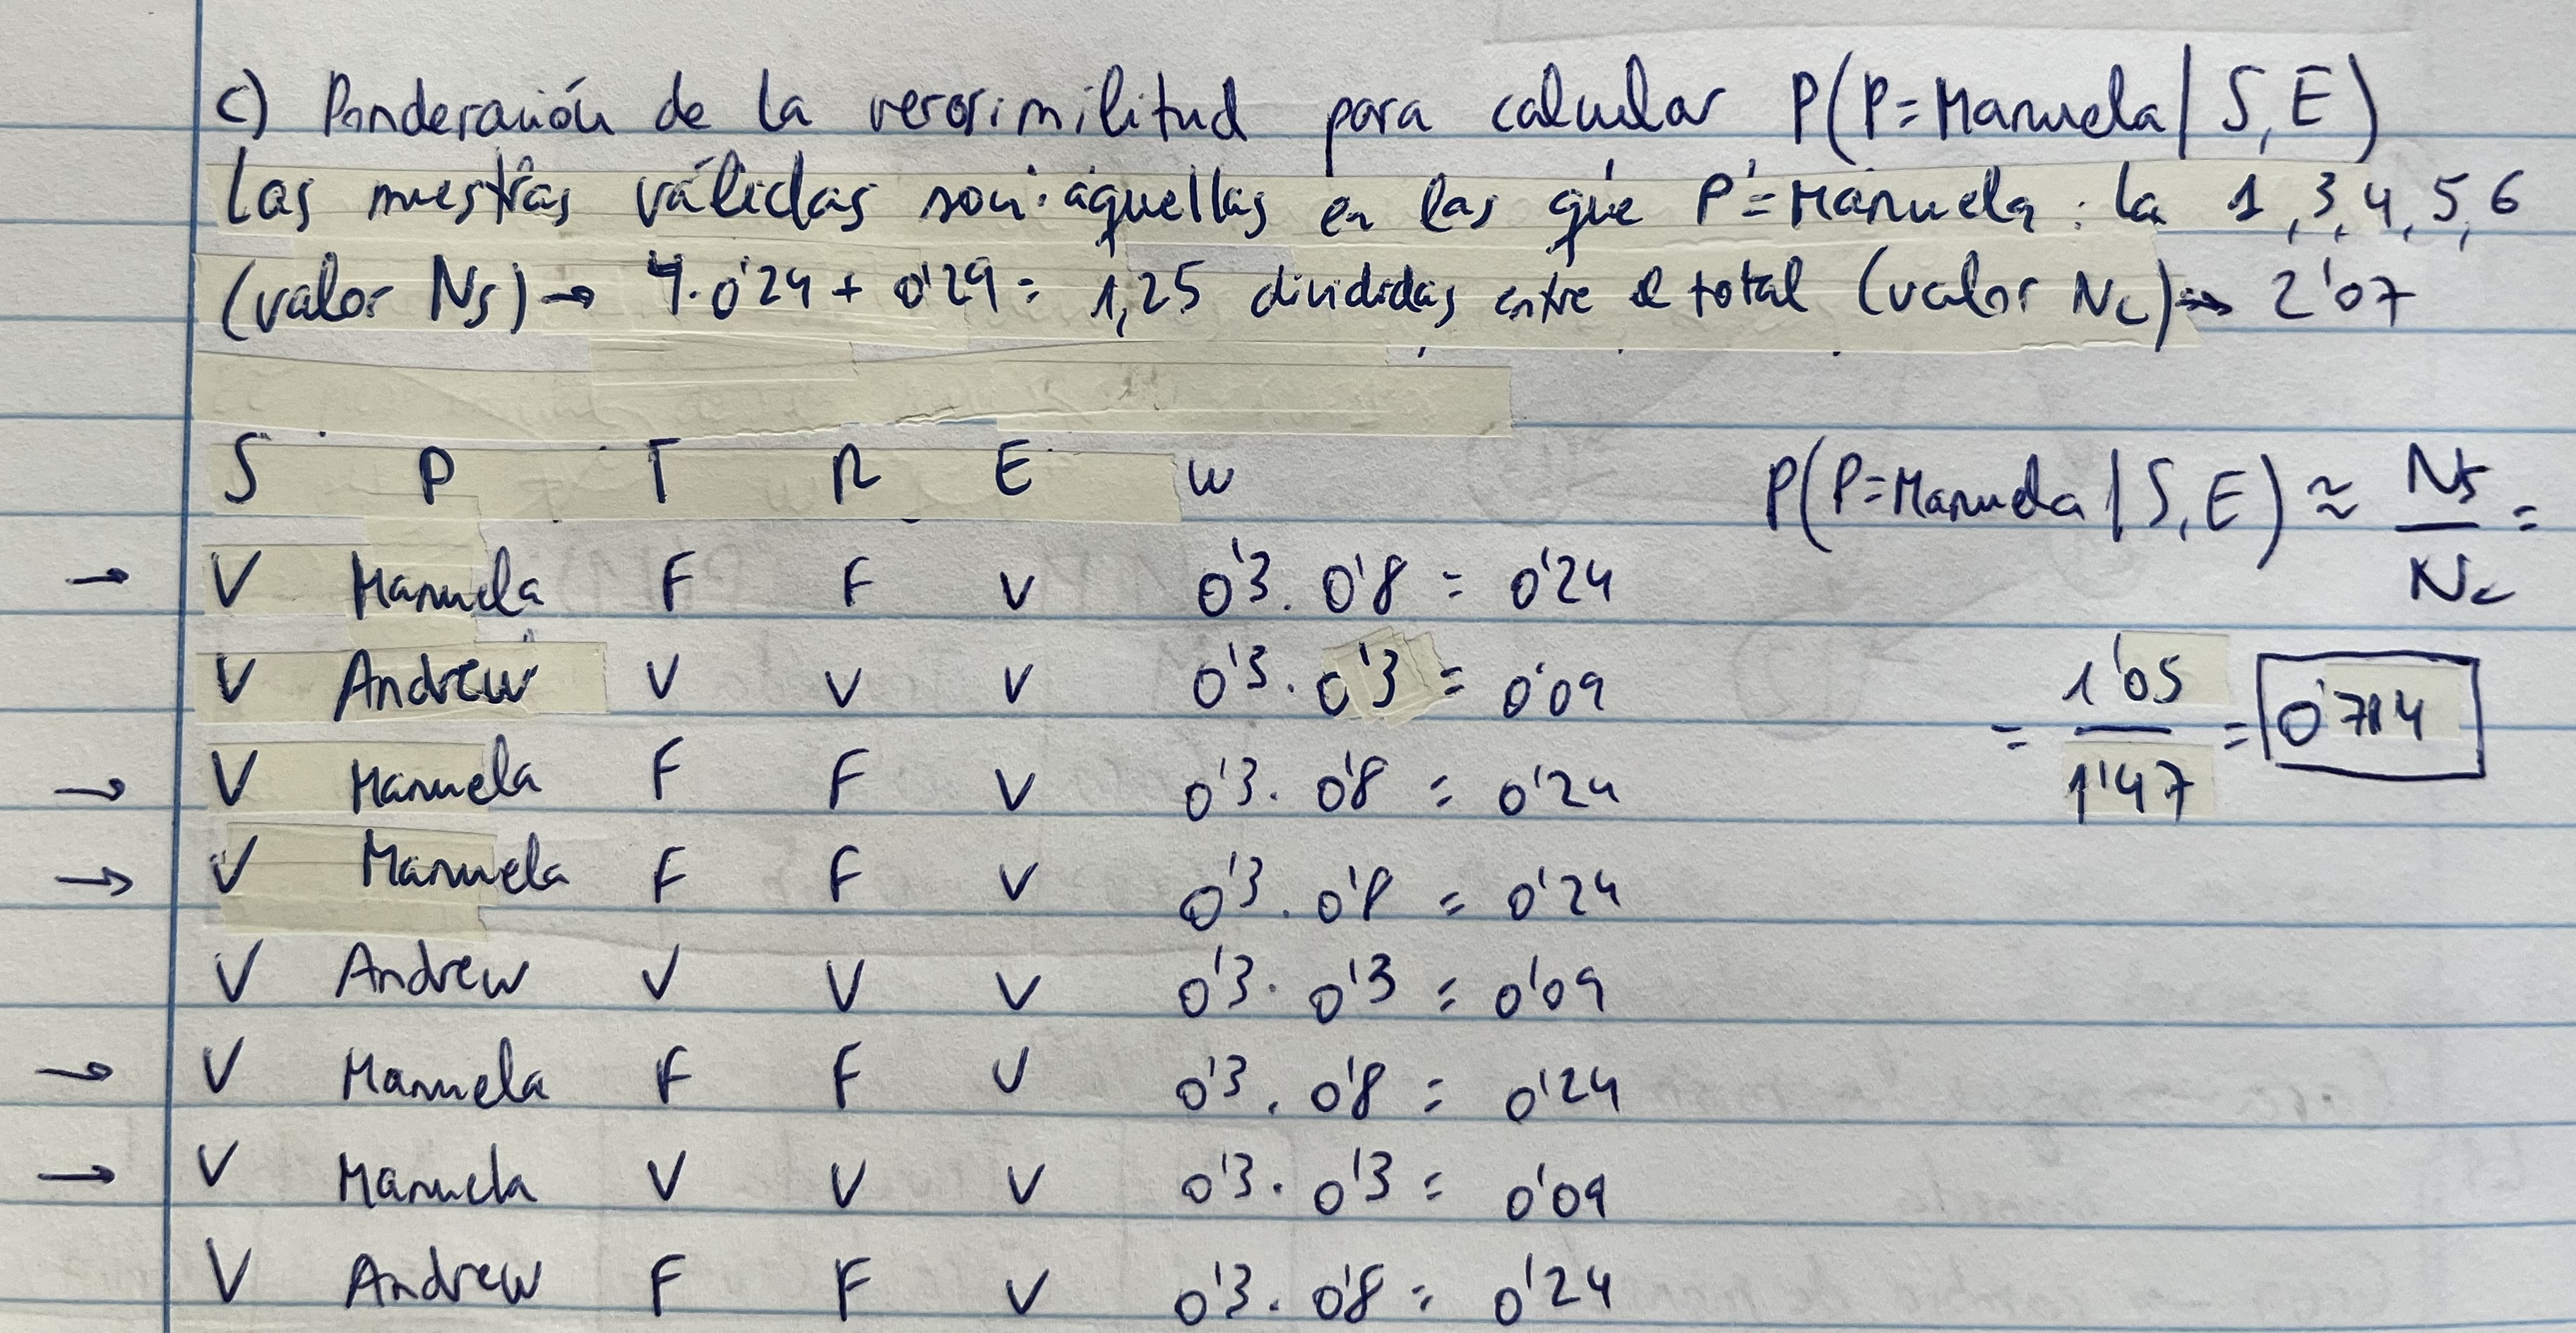 c) Ponderación de la verosimilitud para calcular P(P=Manuela | S, E)
Las muestras válidas son aquellas en las que P=Manuela: la 1, 3, 4, 5, 6
(valor Ns) → 4·0'24 + 0'29 = 1,25 divididas entre el total (valor Nc) → 2'07
S P T R E w
→ V Manuela F F V 0'3 · 0'8 = 0'24
V Andrew V V V 0'3 · 0'3 = 0'09
→ V Manuela F F V 0'3 · 0'8 = 0'24
→ V Manuela F F V 0'3 · 0'8 = 0'24
V Andrew V V V 0'3 · 0'3 = 0'09
→ V Manuela F F V 0'3 · 0'8 = 0'24
→ V Manuela V V V 0'3 · 0'3 = 0'09
V Andrew F F V 0'3 · 0'8 = 0'24
P(P=Manuela | S, E) ≈ Ns / Nc =
= 1'05 / 1'47 = 0'714